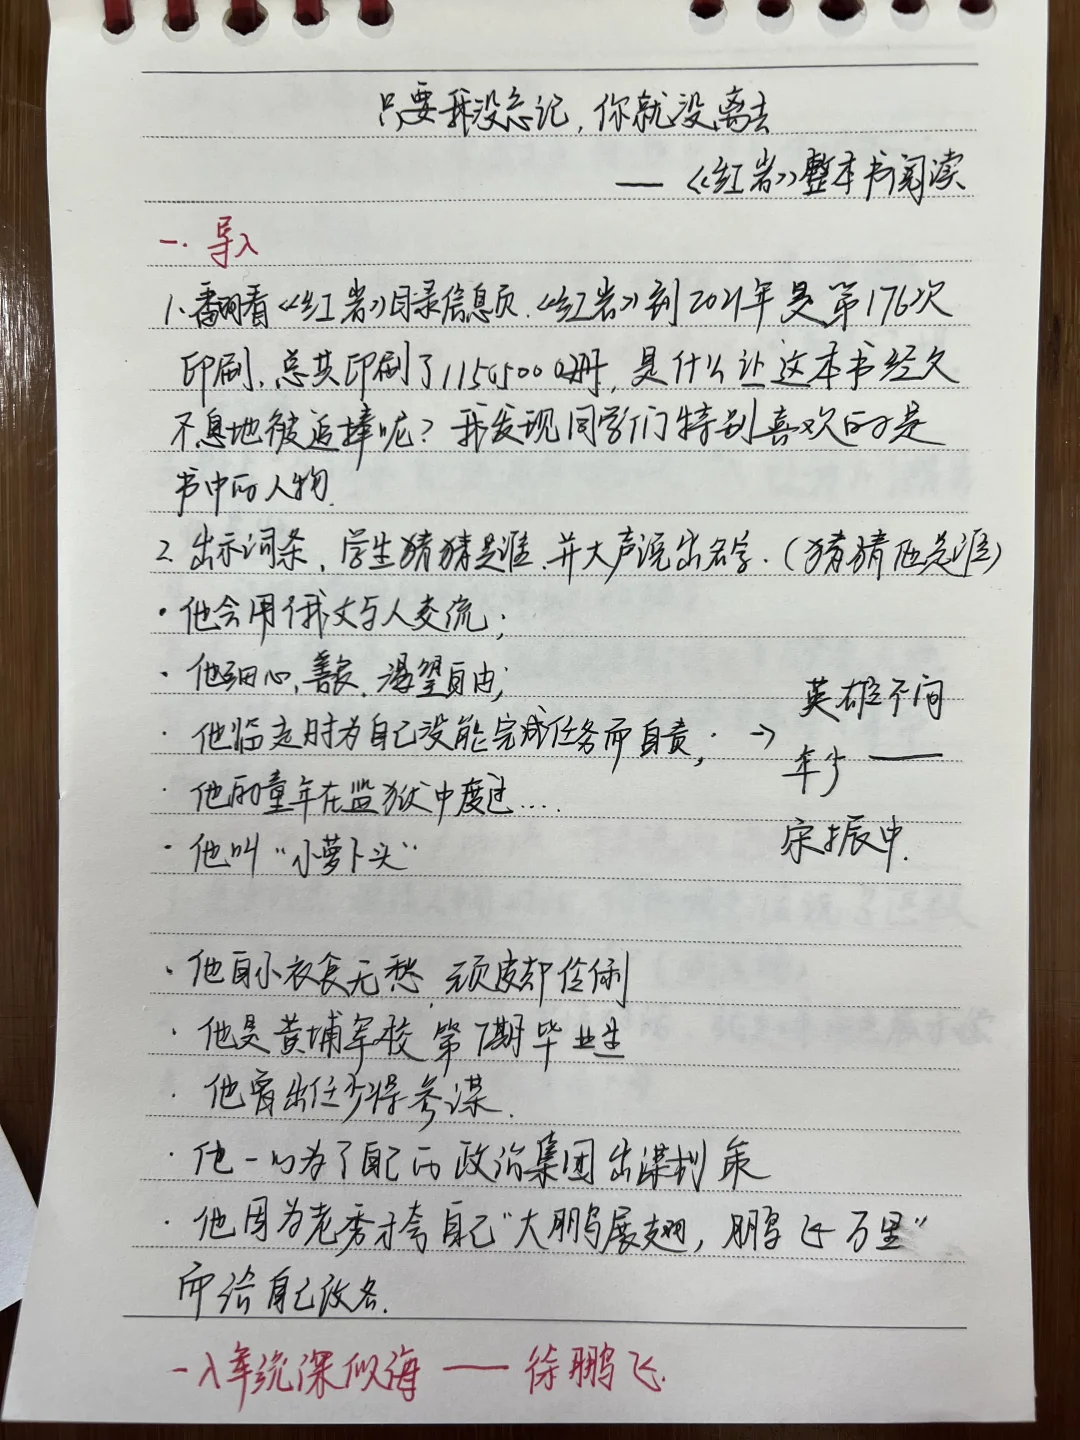 只要我没忘记，你就没离去
——《红岩》整本书阅读
一.导入
1.翻看《红岩》目录信息页.《红岩》到2021年是第176次
印刷，总共印刷了11545000册，是什么让这本书经久
不息地被追捧呢？我发现同学们特别喜欢的才是
书中的人物.
2.出示词条，学生猜猜是谁.并大声说出名字.(猜猜他是谁)
·他会用俄文与人交流；
·他细心、善良、渴望自由；
·他临走时为自己没能完成任务而自责；
·他的童年在监狱中度过....
·他叫“小萝卜头”
→ 英雄不问
年少——
宋振中.
·他自小衣食无愁，顽皮却伶俐
·他是黄埔军校第7期毕业生
·他曾出任少将参谋.
·他一心为了自己的政治集团出谋划策
·他因为老秀才夸自己“大鹏展翅，鹏飞万里”
而给自己改名.
一入军统深似海——徐鹏飞.